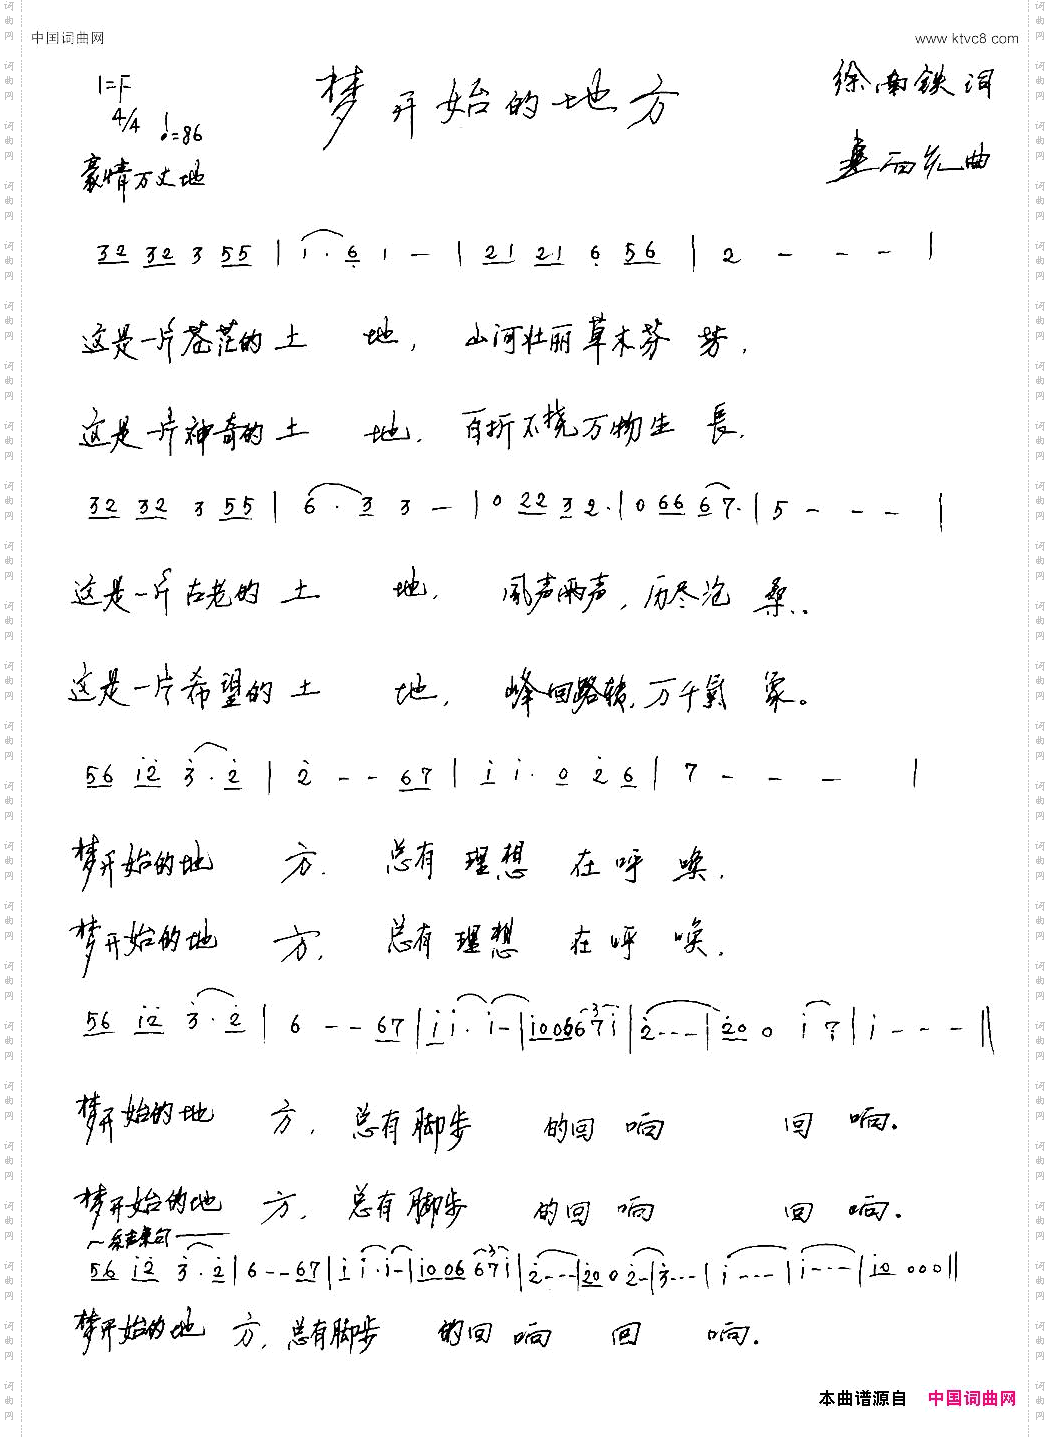 中国词曲网
www.ktvc8.com
1=F
4/4 ♩=86
豪情万丈地
梦开始的地方
徐南铁 词
曲
32 32 3 55 | i · 6 1 — | 21 21 6 56 | 2 - - - |
这是一片苍茫的土 地, 山河壮丽草木芬 芳,
这是一片神奇的土 地, 百折不挠万物生 長,
32 32 3 55 | 6 · 3 3 — | 0 22 3 2· | 0 66 67· | 5 - - - |
这是一片古老的 土 地, 风声雨声, 历尽沧 桑..
这是一片希望的 土 地, 峰回路转, 万千氣 象。
56 i2 3·2 | 2 - - 67 | i i· 0 2 6 | 7 - - - |
梦开始的地 方. 总有 理想 在呼 唤.
梦开始的地 方, 总有 理想 在呼 唤.
56 i2 3·2 | 6 - - 67 | i i· i- | i0 06 6 7 i | 2 - - - | 20 0 i 7 | i - - - ||
梦开始的地 方, 总有脚步 的回 响 回 响.
梦开始的地 方, 总有脚步 的回 响 回 响.
56 i2 3·2 | 6 - - 67 | i i· i- | i0 06 6 7 i | 2 - - - | 20 0 2 - | 3 - - - | i - - - | i - - - | i0 0 0 0 ||
梦开始的地 方, 总有脚步 的回 响 回 响.
本曲谱源自 中国词曲网